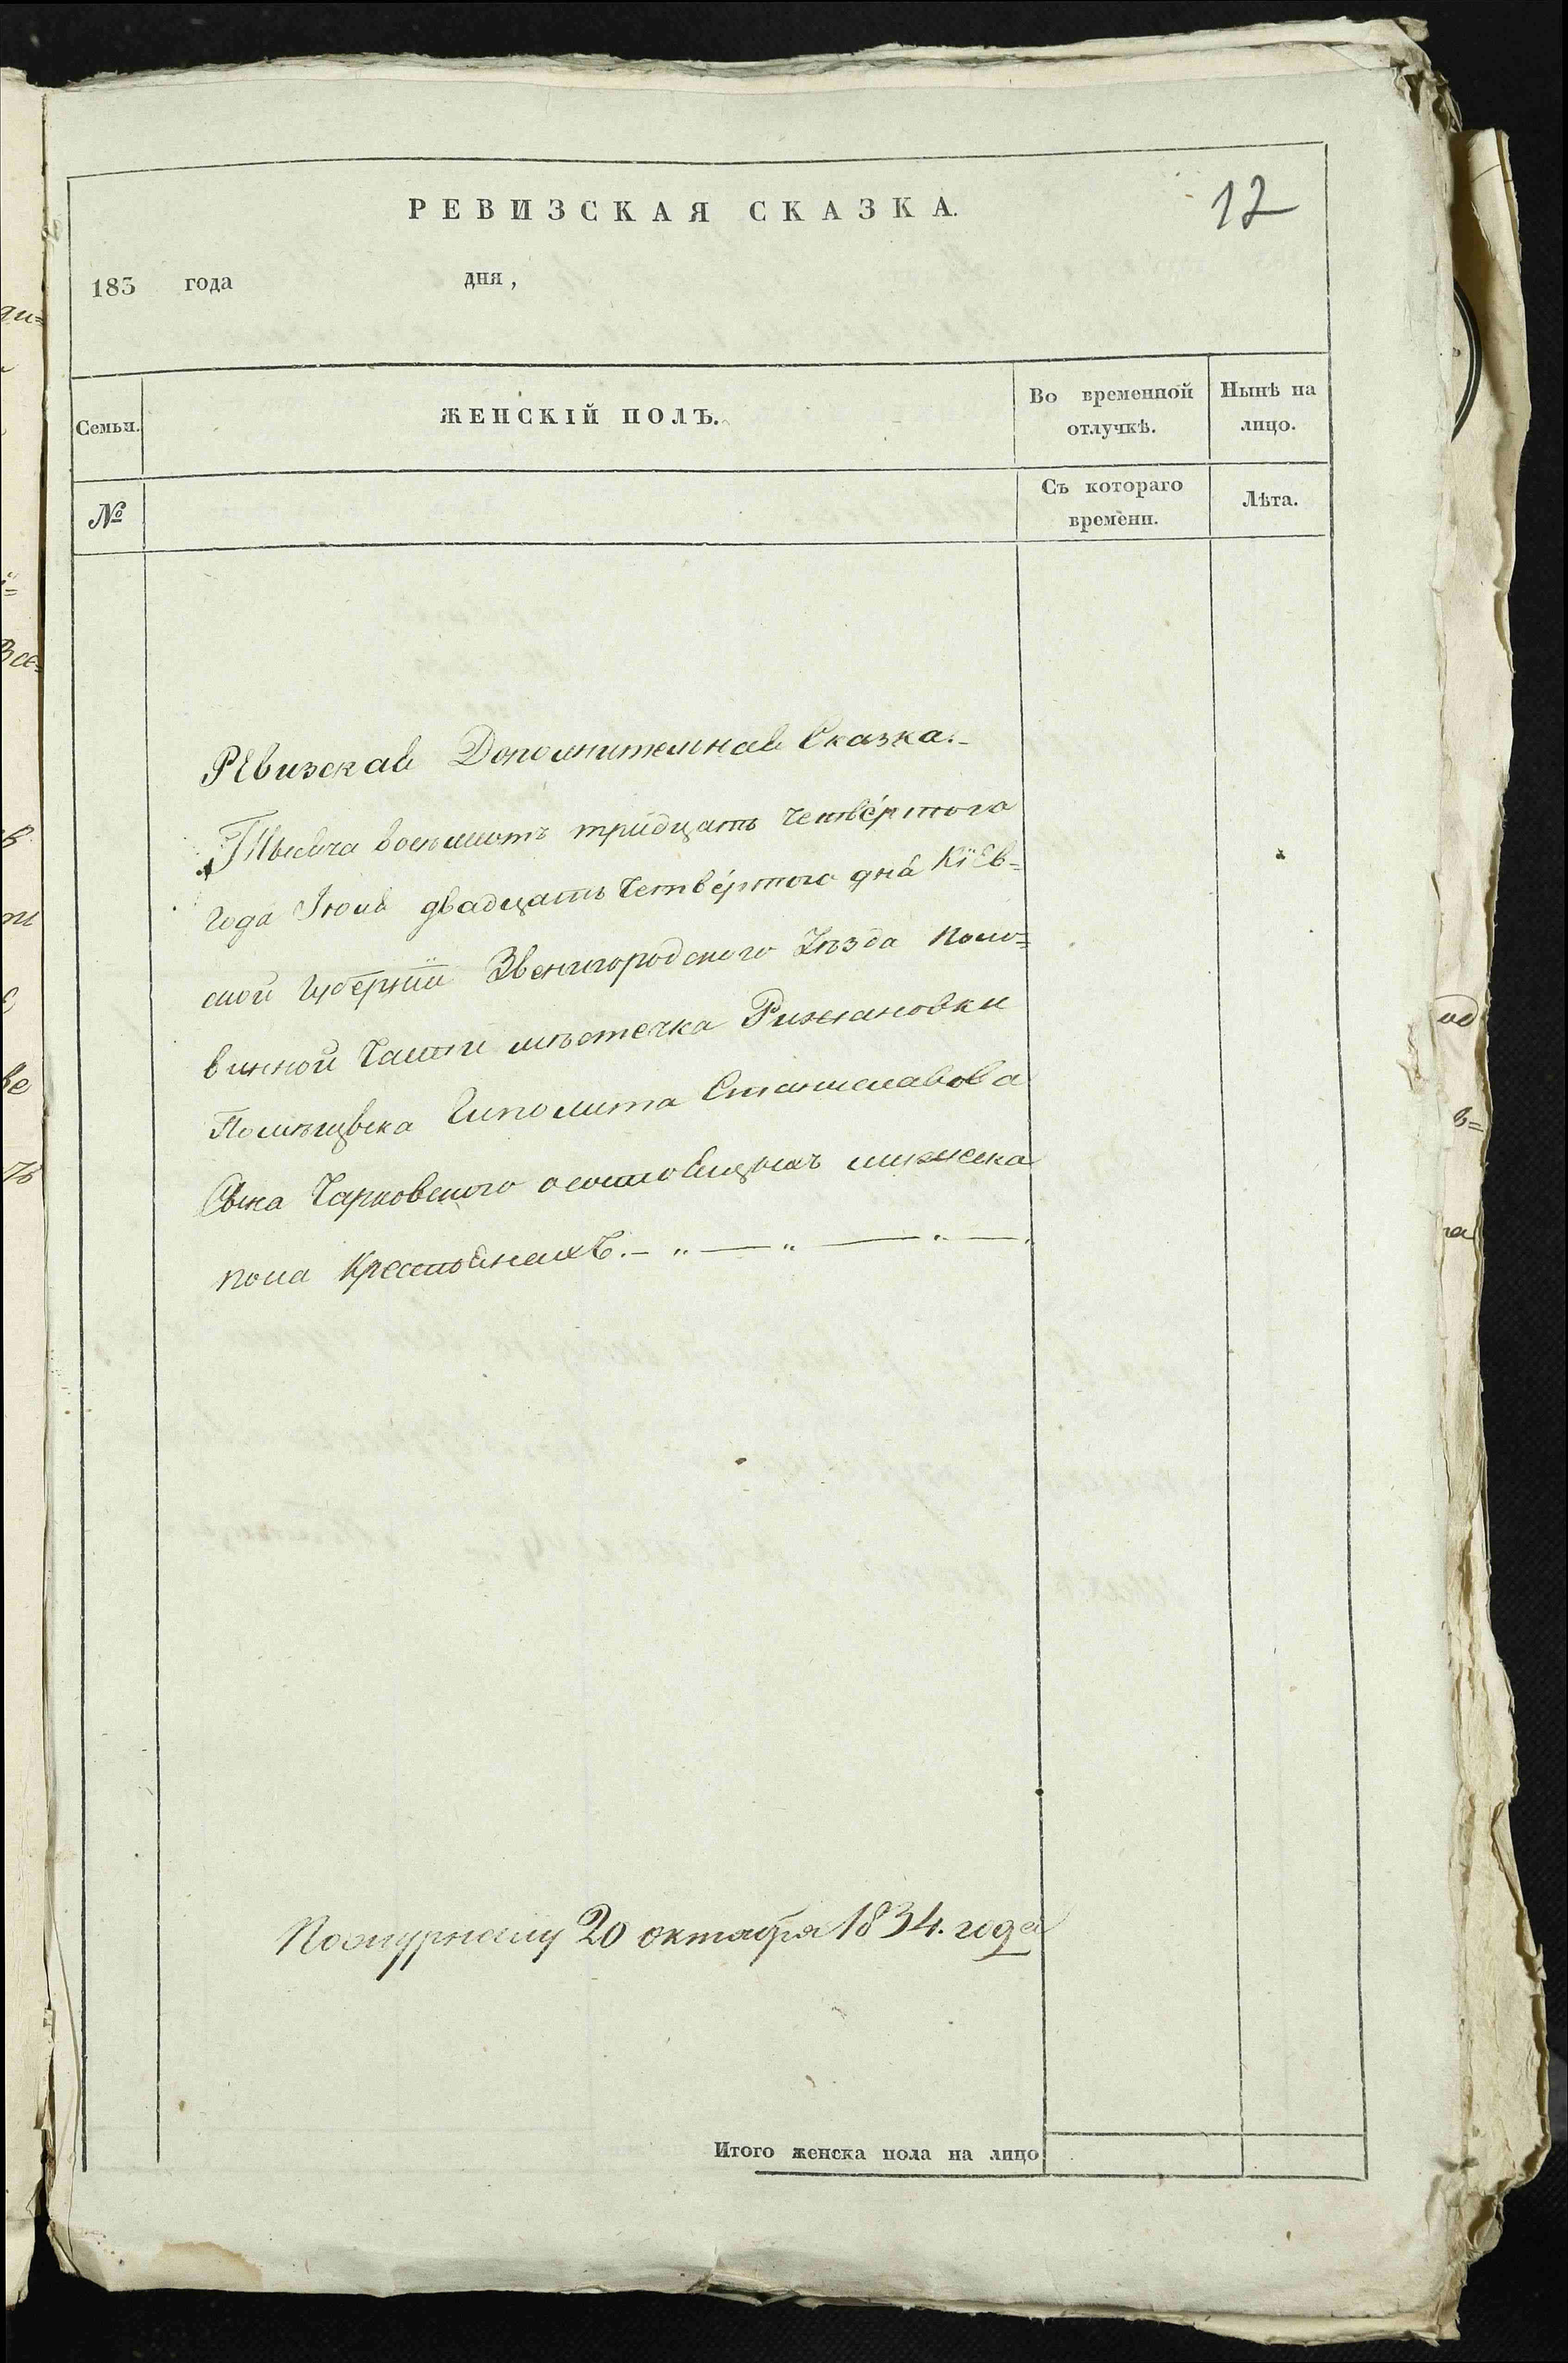 12
РЕВИЗСКАЯ СКАЗКА.
183 года дня,
Семьи.
ЖЕНСКІЙ ПОЛЪ.
Во временной отлучкѣ.
Нынѣ на лицо.
№
Съ котораго времени.
Лѣта.
Ревизская Дополнительная Сказка.
Тысяча восемьсотъ тридцать четвертого
года Іюля двадцать четвертого дня Кіев=
ской Губерніи Звенигородского Уѣзда поло=
винной Части мѣстечка Рижановки
Помѣщика Гиполита Станиславова
Сына Чарковского осостоящыхъ женска
пола Крестьянахъ.
По журналу 20 октября 1834. года
Итого женска пола на лицо